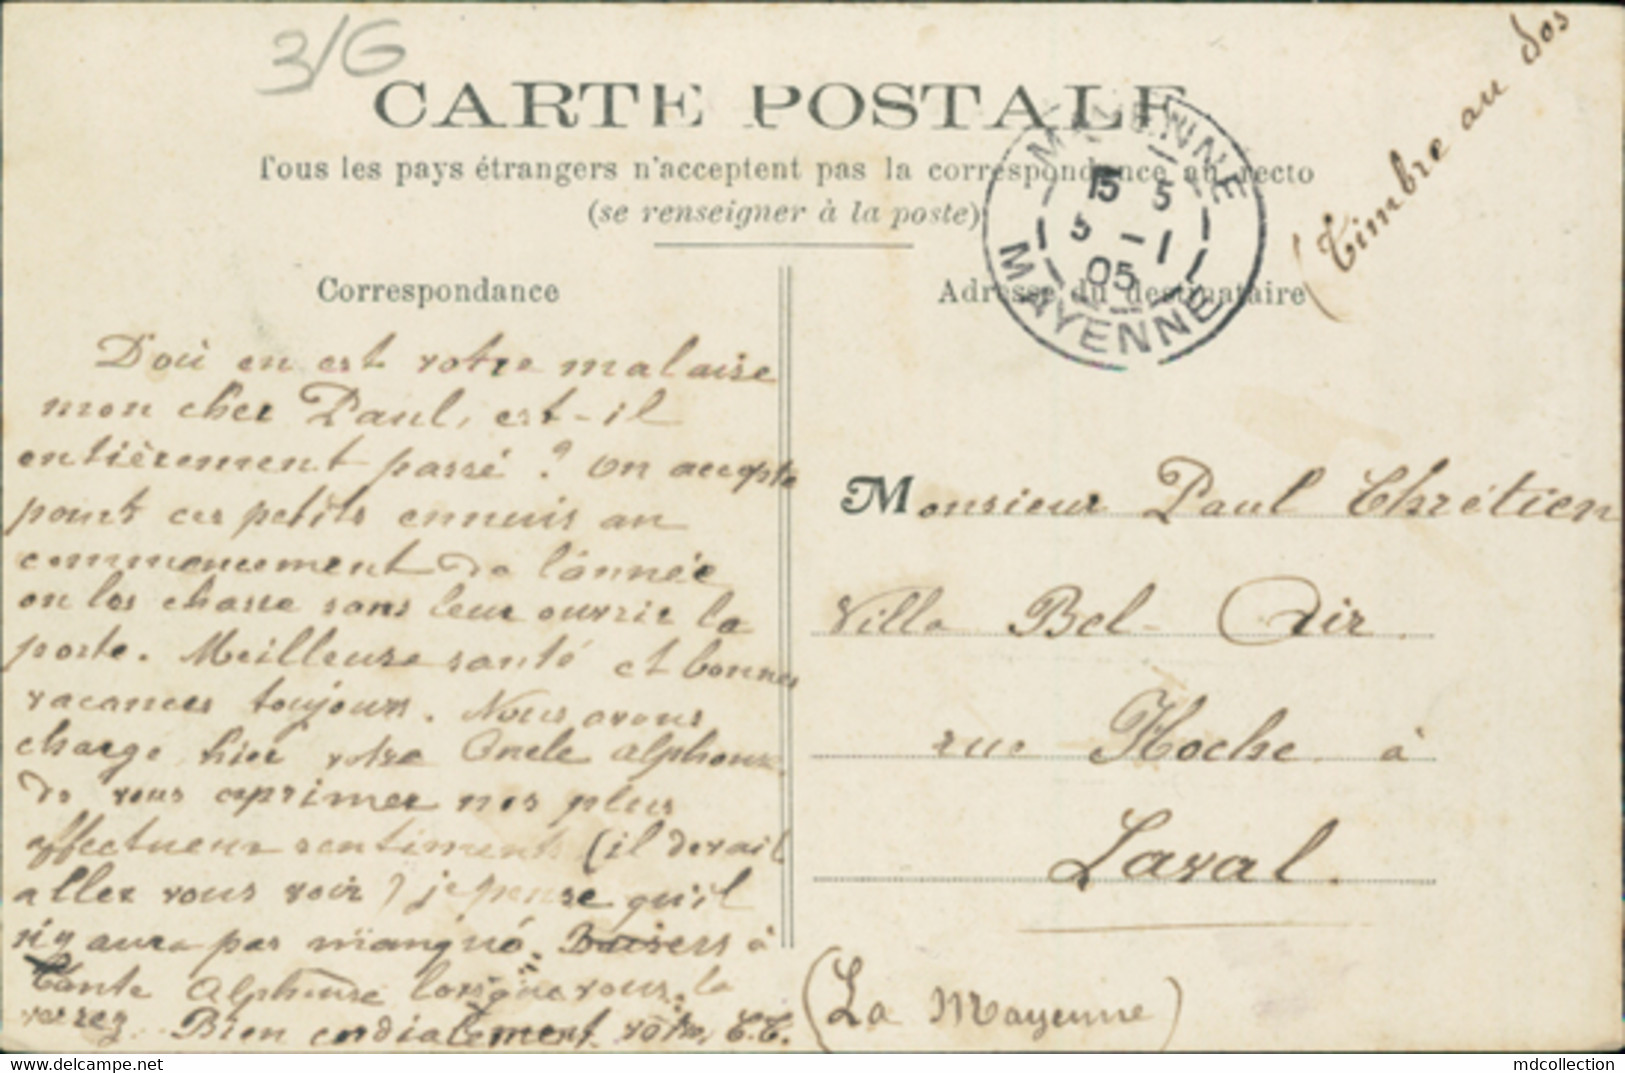 3/6
CARTE POSTALE
Tous les pays étrangers n'acceptent pas la correspondance au recto
(se renseigner à la poste)
MAYENNE
15 5
5 - 1
05
MAYENNE
(Timbre au dos
Correspondance
Doù en est votre malaise
mon cher Paul, est-il
entièrement passé ? On accepte
point ces petits ennuis au
commencement de l'année
on les chasse sans leur ouvrir la
porte. Meilleure santé et bonnes
vacances toujours. Nous avons
chargé hier votre Oncle Alphonse
de vous exprimer nos plus
affectueux sentiments (il devait
aller vous voir) je pense qu'il
n'y aura pas manqué. Baisers à
Tante Alphonse lorsque vous la
verrez. Bien cordialement vôtre, C.C.
Adresse du destinataire
Monsieur Paul Chrétien
Villa Bel-Air
rue Hoche à
Laval.
(La Mayenne)
www.delcampe.net
mdcollection